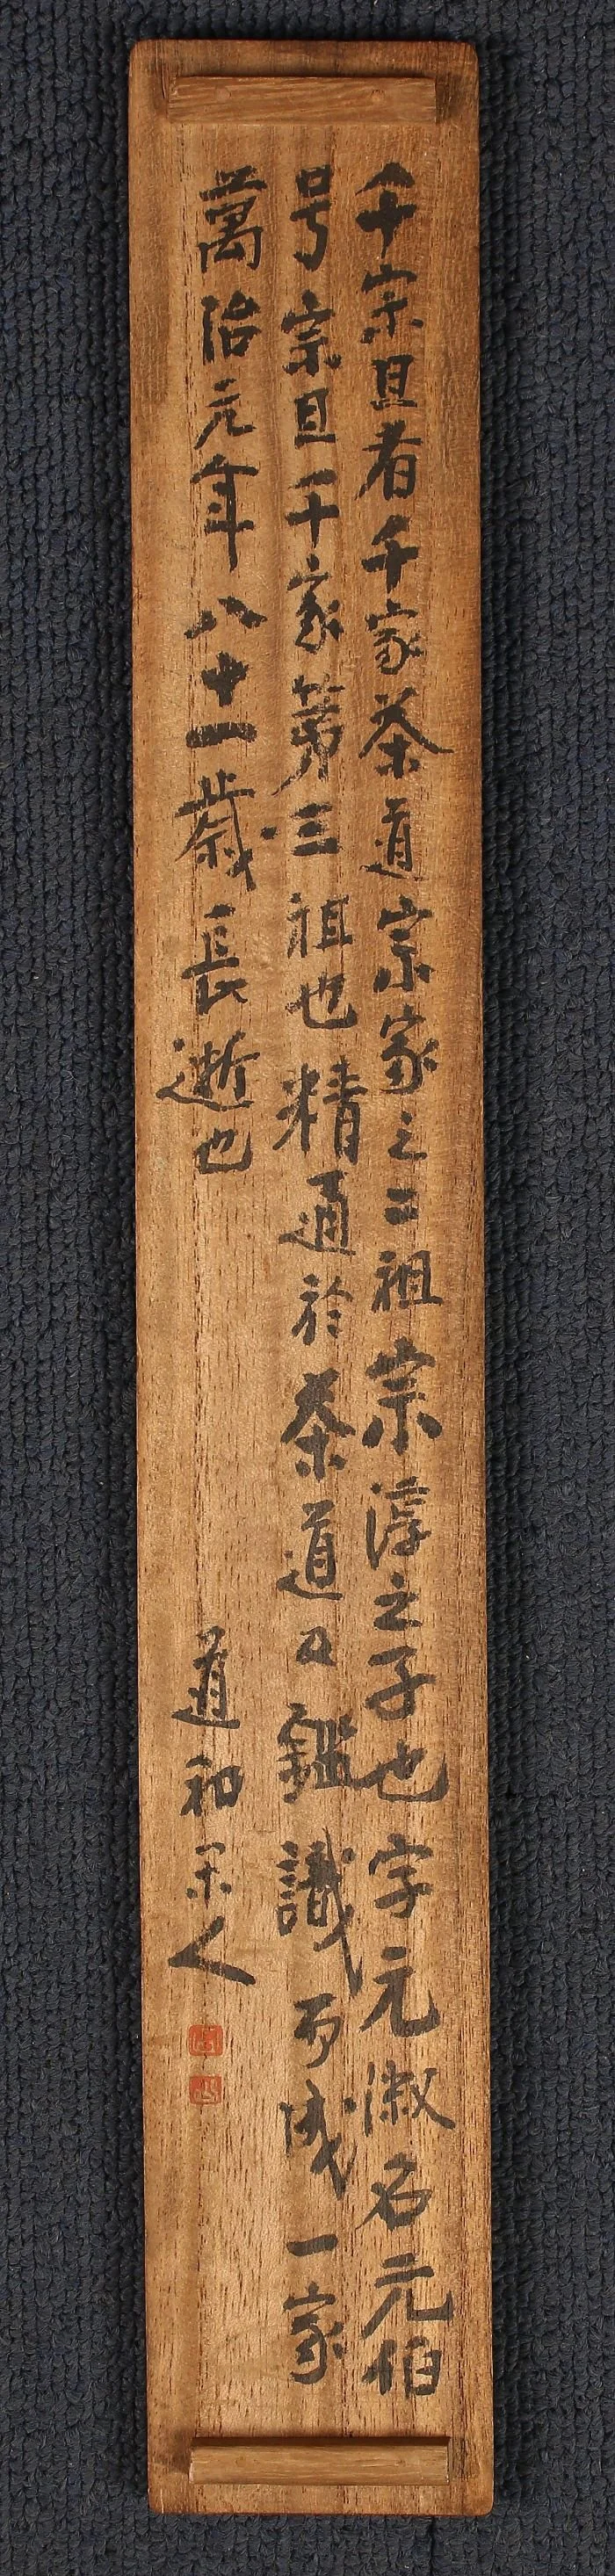 千宗旦者千家茶道宗家之二祖宗淳之子也字元淑名元伯
号宗旦千家第三祖也精通於茶道及鑑識而成一家
萬治元年八十一歳長逝也
道和
人